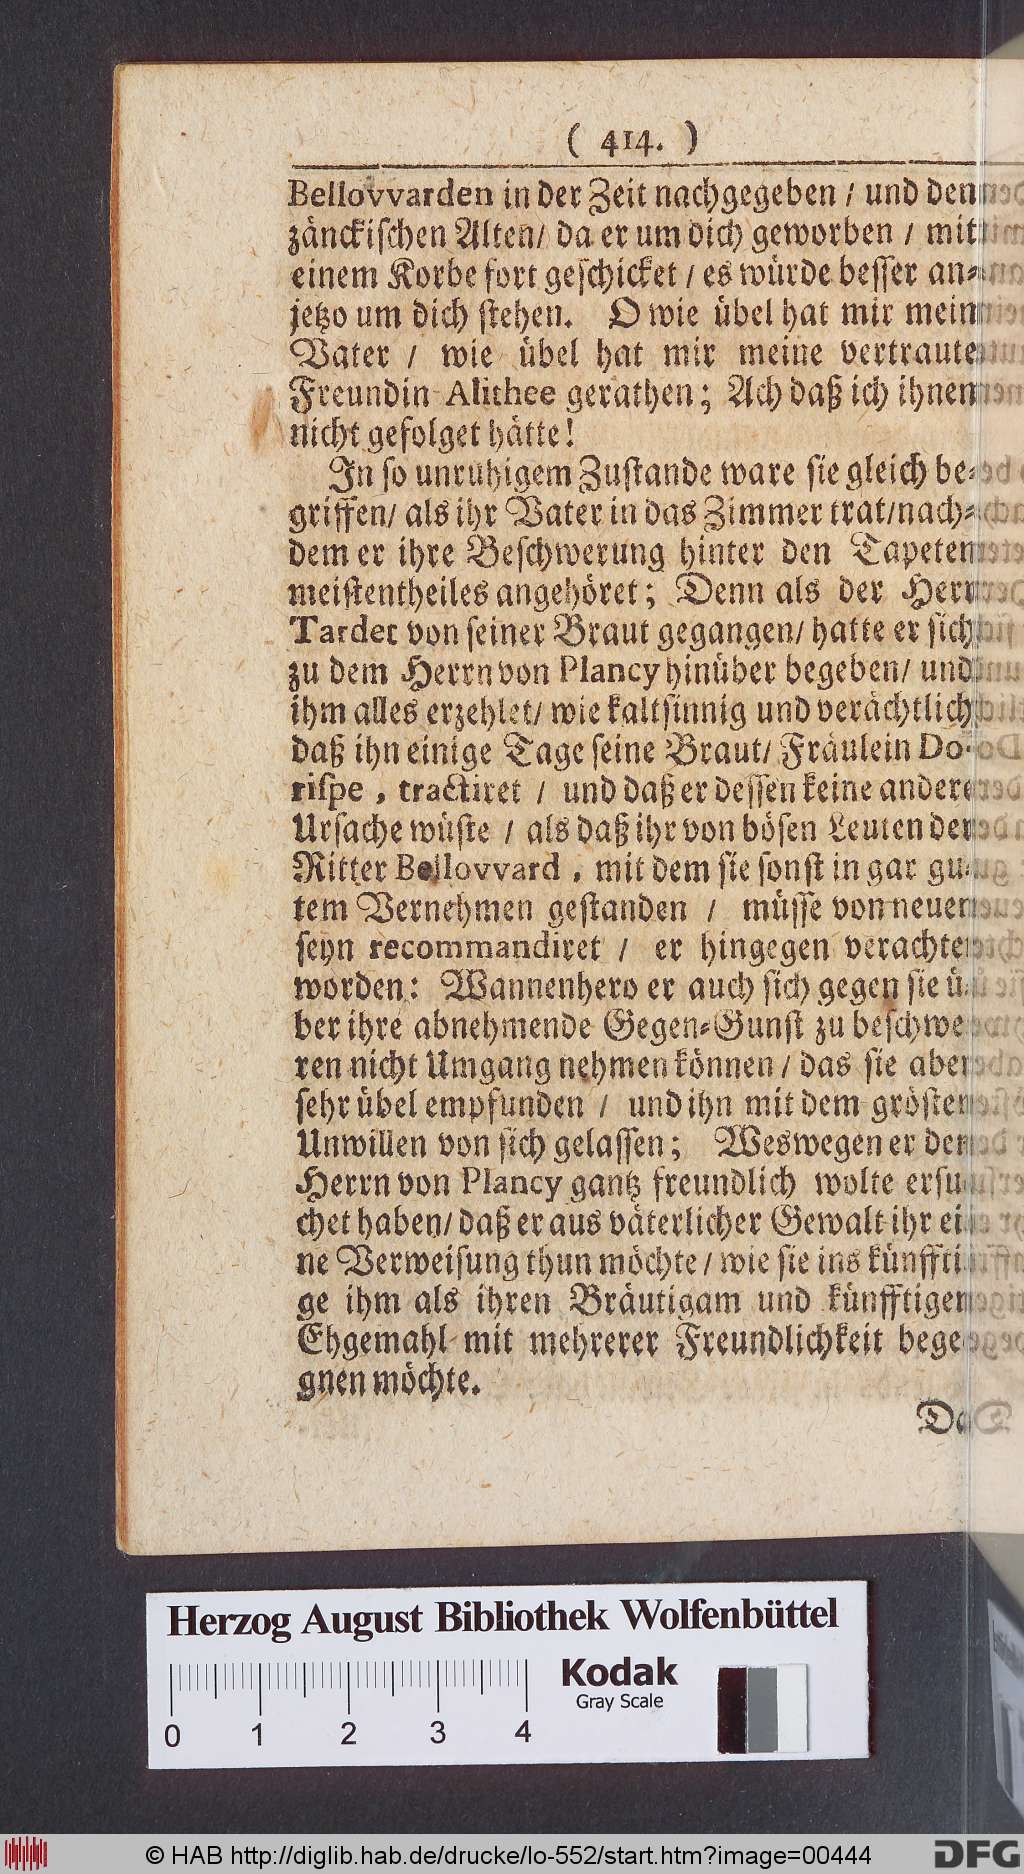 ( 414. )
Bellovvarden in der Zeit nachgegeben / und den
zänckischen Alten / da er um dich geworben / mit
einem Korbe fort geschicket / es würde besser an-
jetzo um dich stehen. O wie übel hat mir mein
Vater / wie übel hat mir meine vertraute
Freundin Alithee gerathen; Ach daß ich ihnen
nicht gefolget hätte!
In so unruhigem Zustande ware sie gleich be-
griffen / als ihr Vater in das Zimmer trat / nach-
dem er ihre Beschwerung hinter den Tapeten
meistentheiles angehöret; Denn als der Herr
Tardet von seiner Braut gegangen / hatte er sich
zu dem Herrn von Plancy hinüber begeben / und
ihm alles erzehlet / wie kaltsinnig und verächtlich
daß ihn einige Tage seine Braut / Fräulein Do-
rispe, tractiret / und daß er dessen keine andere
Ursache wüste / als daß ihr von bösen Leuten der
Ritter Bellovvard, mit dem sie sonst in gar gu-
tem Vernehmen gestanden / müsse von neuen
seyn recommandiret / er hingegen verachtet
worden: Wannenhero er auch sich gegen sie ü-
ber ihre abnehmende Gegen-Gunst zu beschwe-
ren nicht Umgang nehmen können / das sie aber
sehr übel empfunden / und ihn mit dem grösten
Unwillen von sich gelassen; Weswegen er den
Herrn von Plancy gantz freundlich wolte ersu-
chet haben / daß er aus väterlicher Gewalt ihr ei-
ne Verweisung thun möchte / wie sie ins künffti-
ge ihm als ihren Bräutigam und künfftigen
Ehgemahl mit mehrerer Freundlichkeit bege-
gnen möchte.
Da
Herzog August Bibliothek Wolfenbüttel
Kodak
Gray Scale
0 1 2 3 4
© HAB http://diglib.hab.de/drucke/lo-552/start.htm?image=00444
DFG